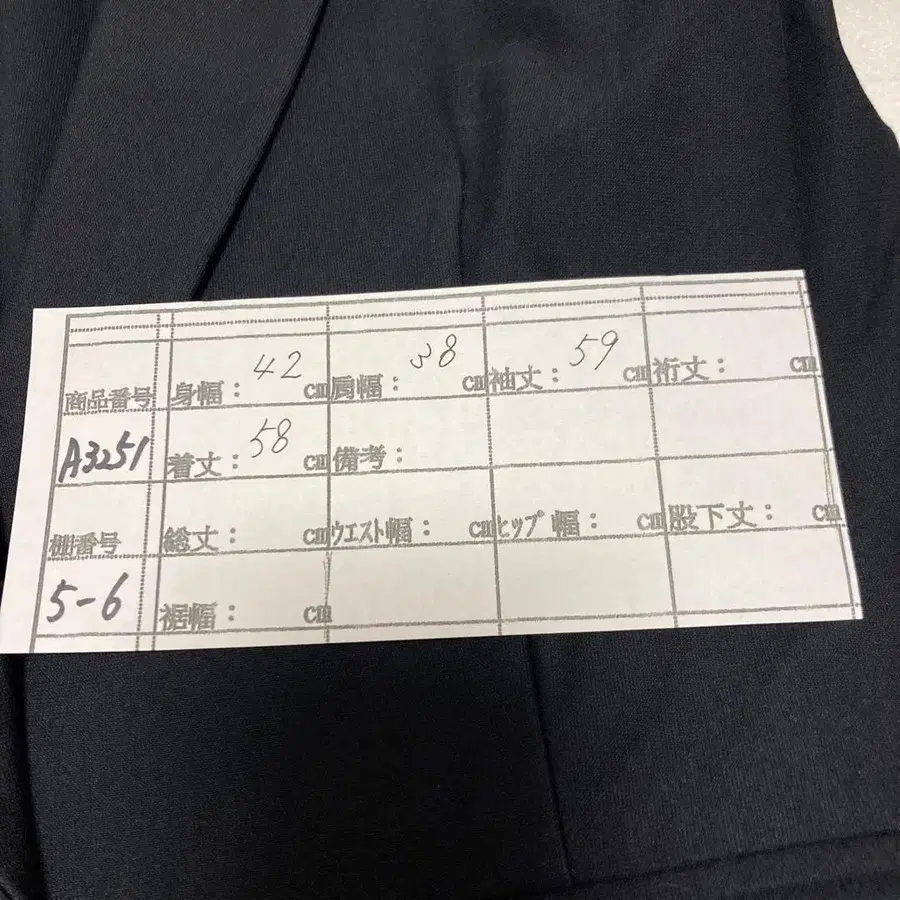 商品番号 身幅: 42 cm 肩幅: 38 cm 袖丈: 59 cm 裄丈: cm
A3251 着丈: 58 cm 備考:
棚番号 総丈: cm ウエスト幅: cm ヒップ幅: cm 股下丈: cm
5-6 裾幅: cm